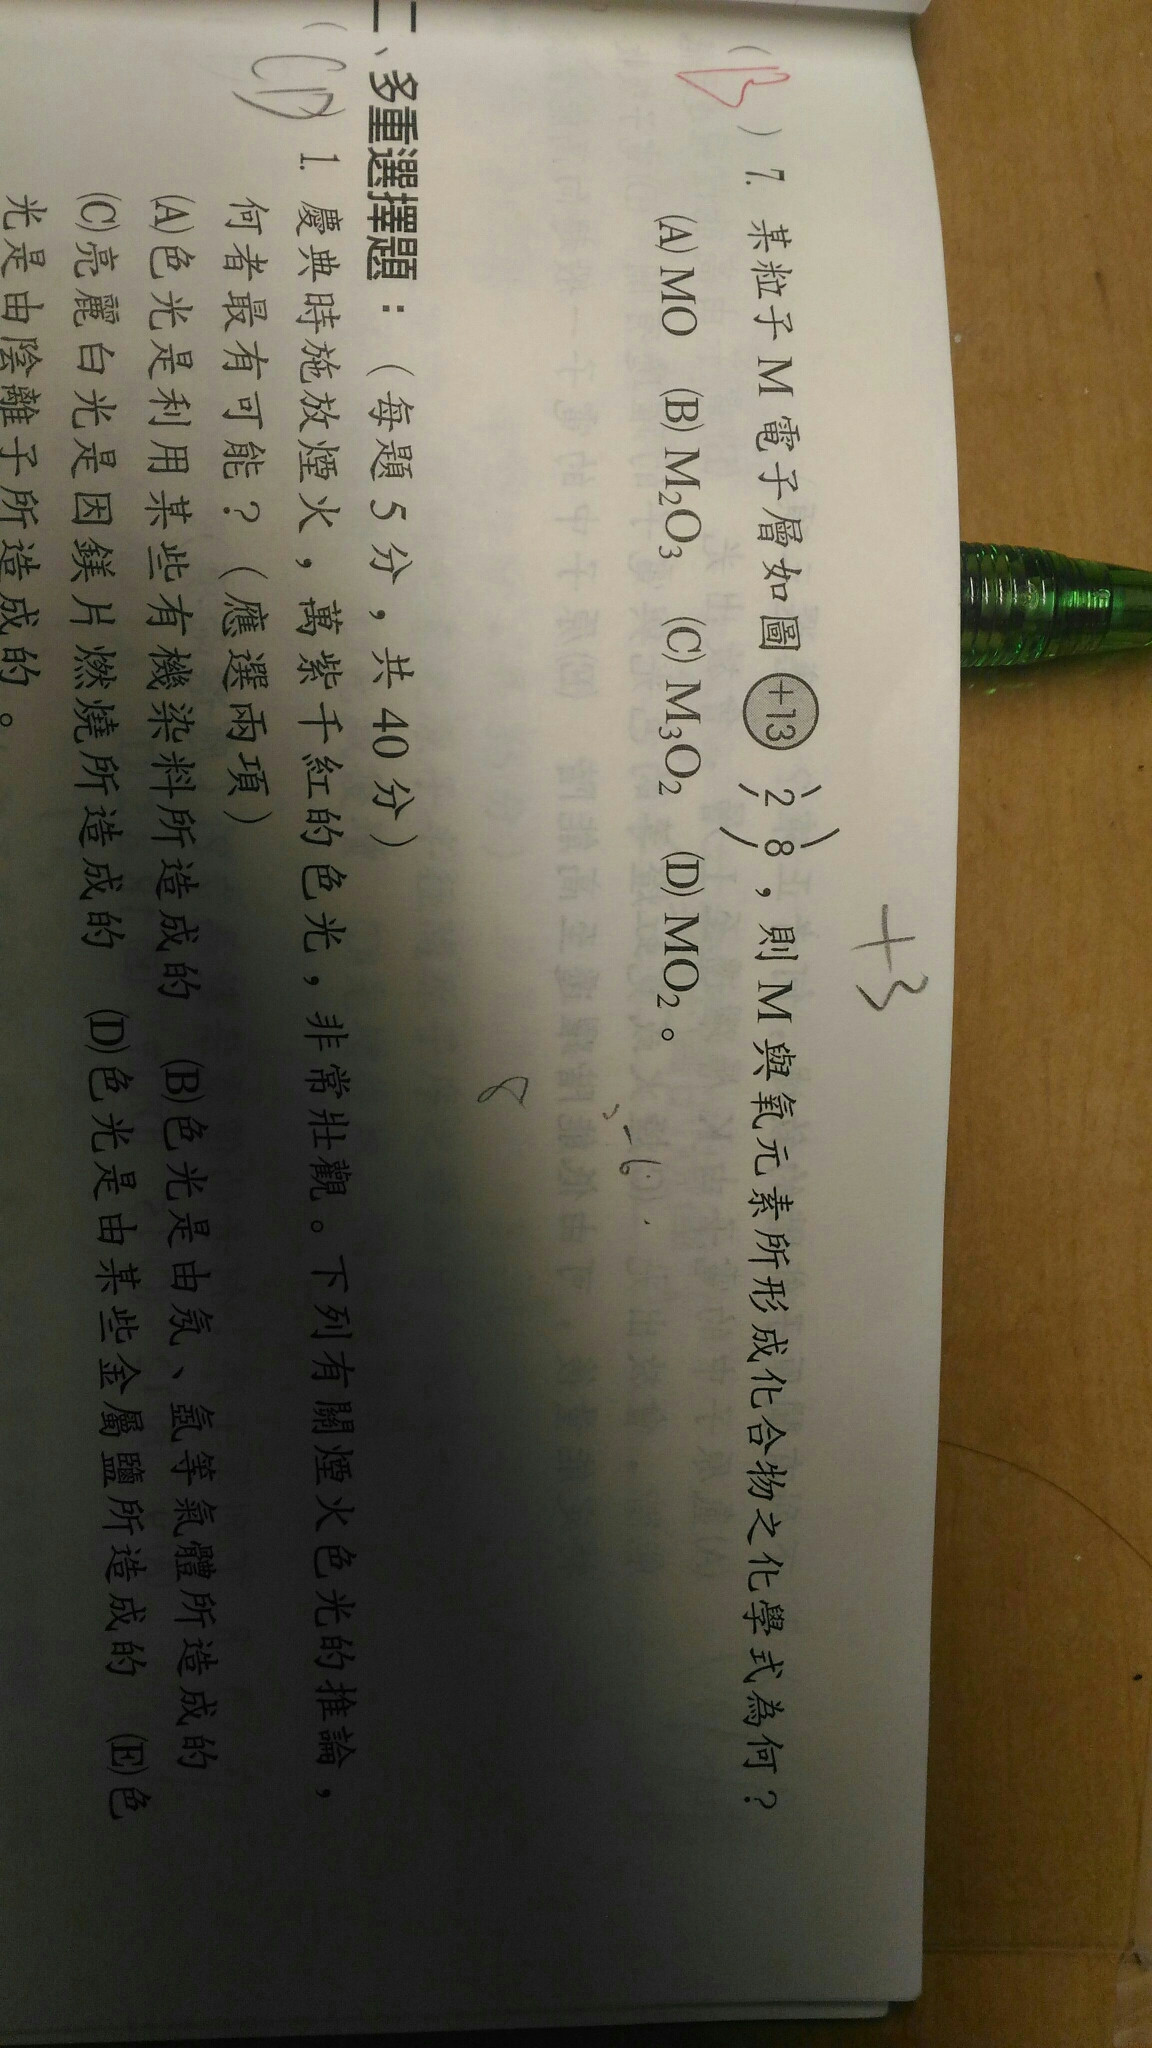 +3
(B) 7. 某粒子 M 電子層如圖 +13 2 8，則 M 與氧元素所形成化合物之化學式為何？
(A) MO (B) M₂O₃ (C) M₃O₂ (D) MO₂。
-6
8
二、多重選擇題：（每題 5 分，共 40 分）
(CD) 1. 慶典時施放煙火，萬紫千紅的色光，非常壯觀。下列有關煙火色光的推論，
何者最有可能？（應選兩項）
(A)色光是利用某些有機染料所造成的 (B)色光是由氖、氬等氣體所造成的
(C)亮麗白光是因鎂片燃燒所造成的 (D)色光是由某些金屬鹽所造成的 (E)色
光是由陰離子所造成的。